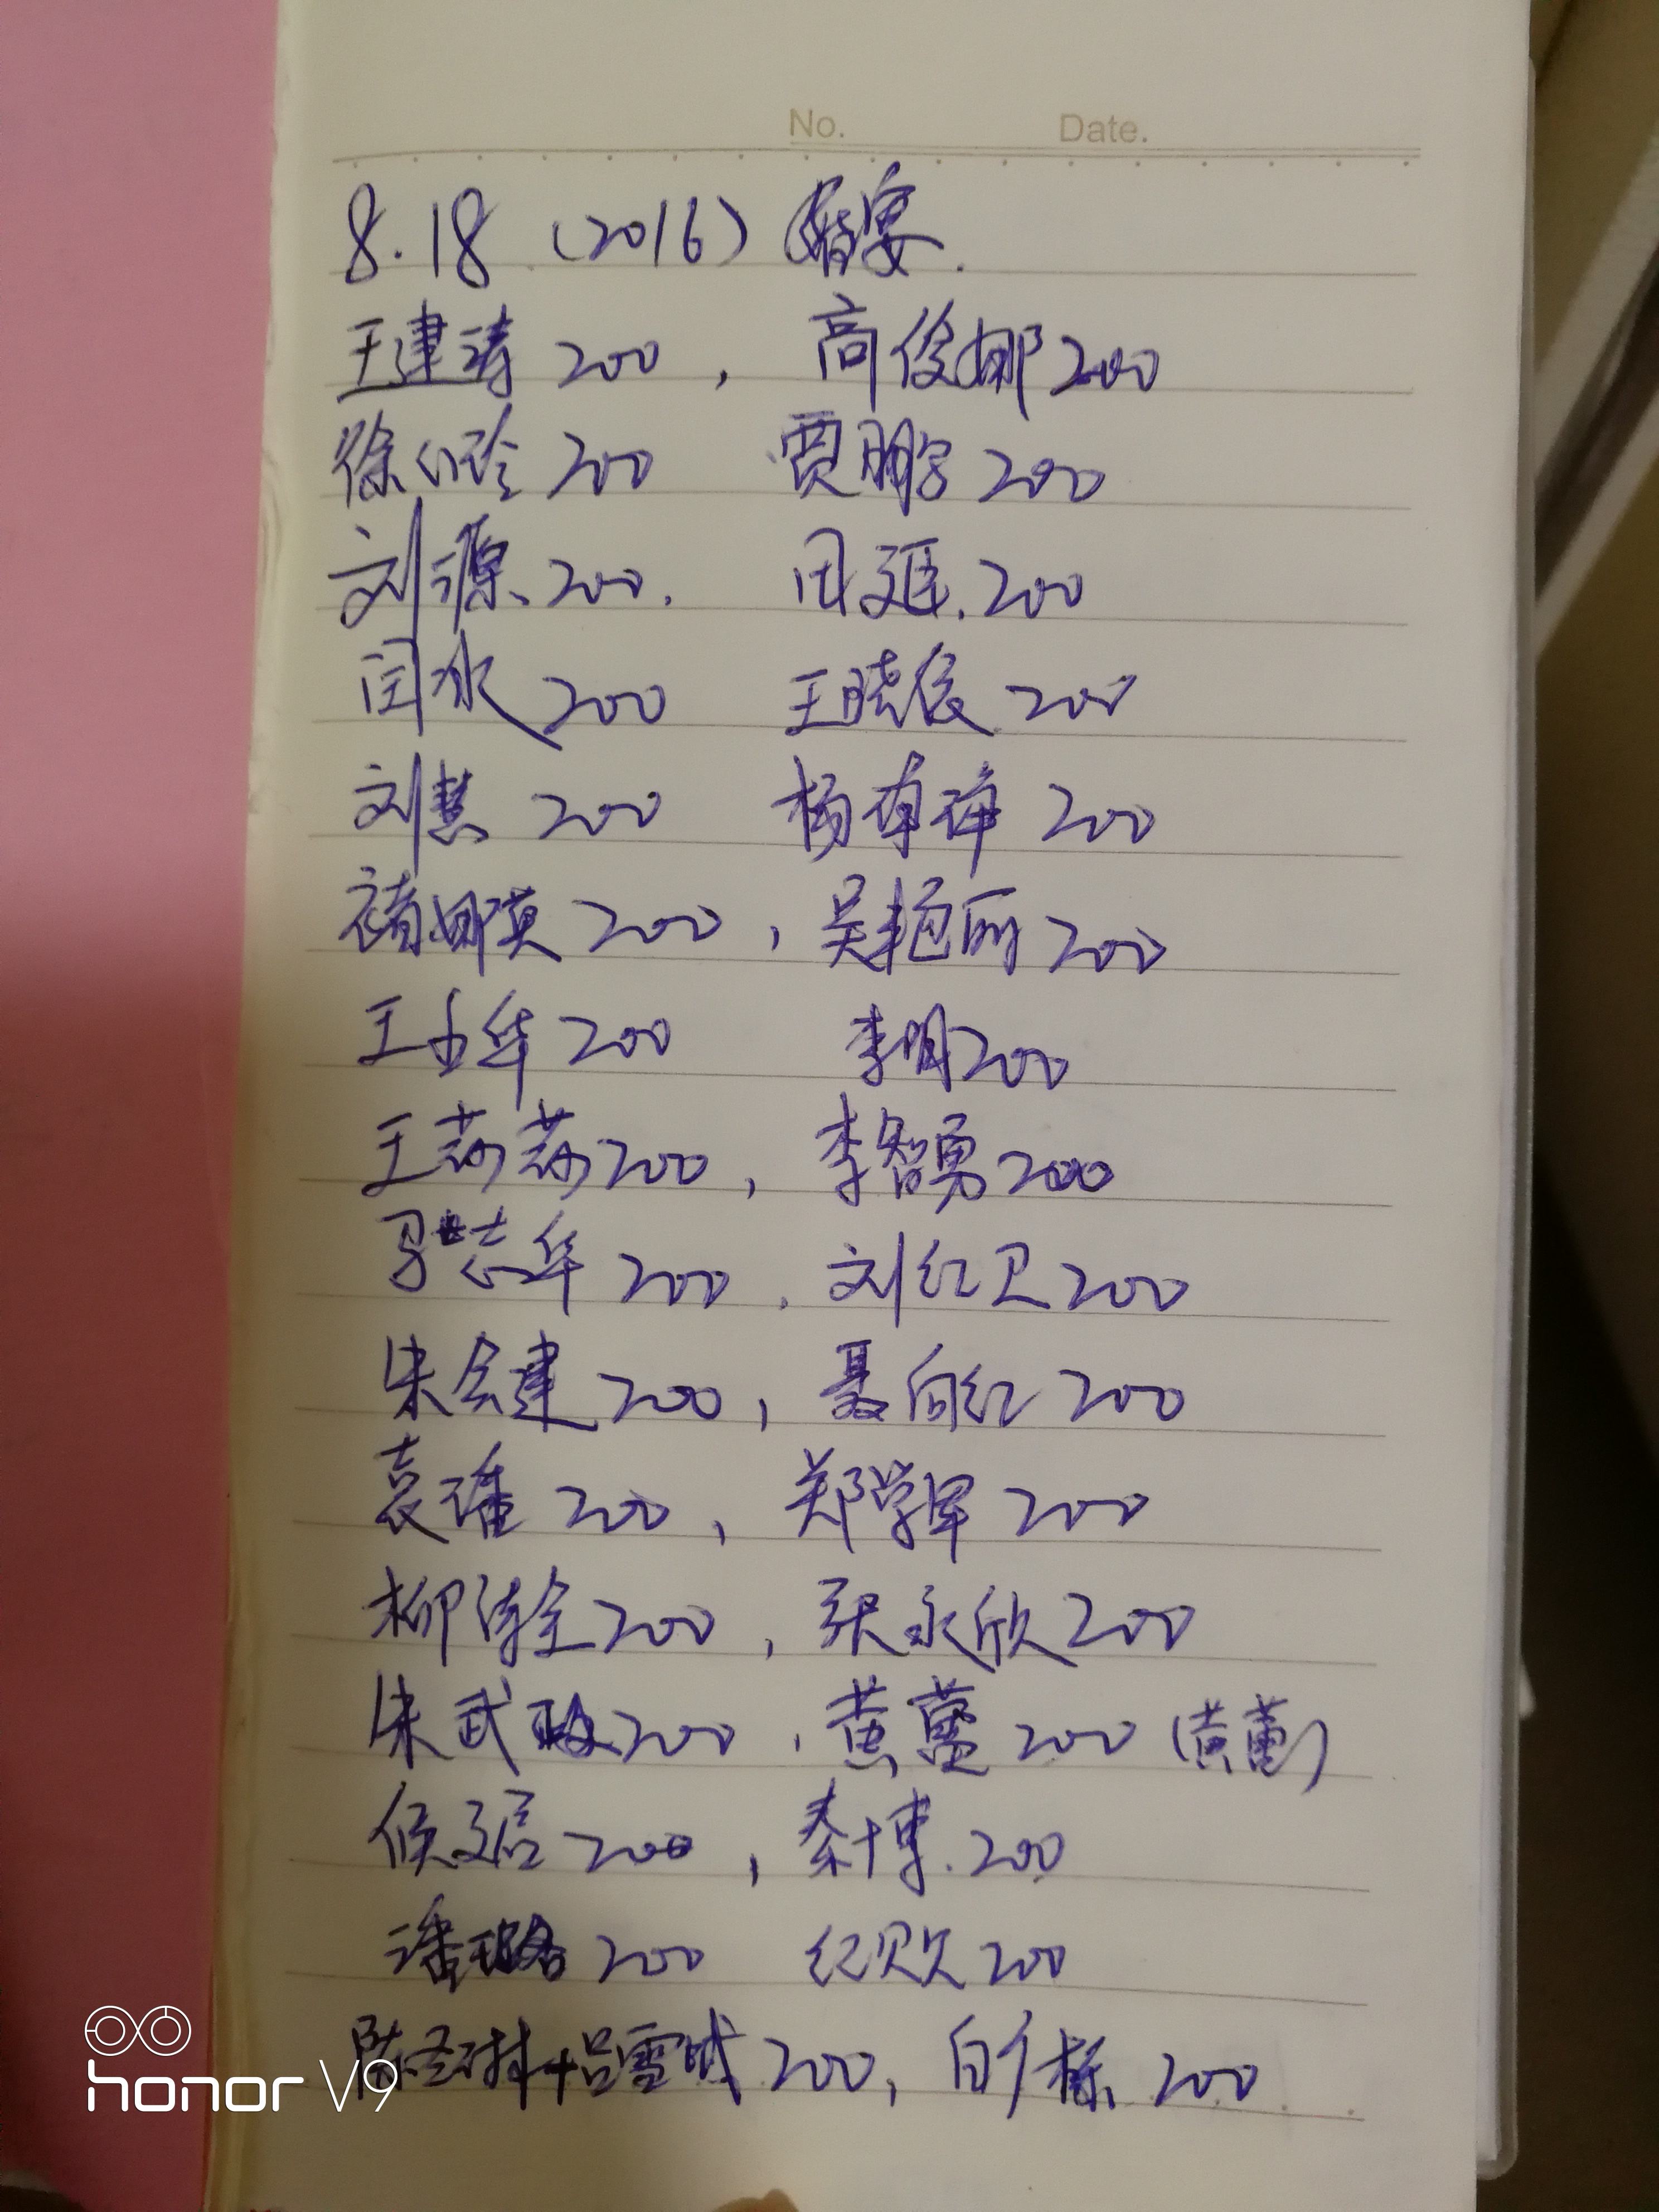 No. Date.
8.18 (2016) 婚宴.
王建涛 200 , 高俊娜 200
徐小玲 200 贾鹏宇 200
刘源、200. 田延.200
闫冰 200 王晓俊 200
刘慧 200 杨 200
褚娜英 200 , 吴艳丽 200
王玉华 200 李明 200
王莎莎 200 , 李智勇 200
马志华 200 , 刘红卫 200
朱会建 200 , 聂向红 200
袁璠 200 , 郑学军 200
柳 200 , 张永欣 200
朱武 200 , 黄蕾 200 (黄蕾)
侯 200 , 秦博.200
潘璐 200 纪 200
陈圣琳+吕雪 200, 白 栋 200
honor V9